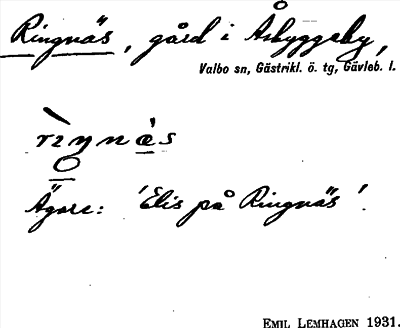 Ringnäs, gård i Åbyggeby,
Valbo sn, Gästrikl. ö. tg, Gävleb. l.
Ägare: 'Elis på Ringnäs'.
EMIL LEMHAGEN 1931.